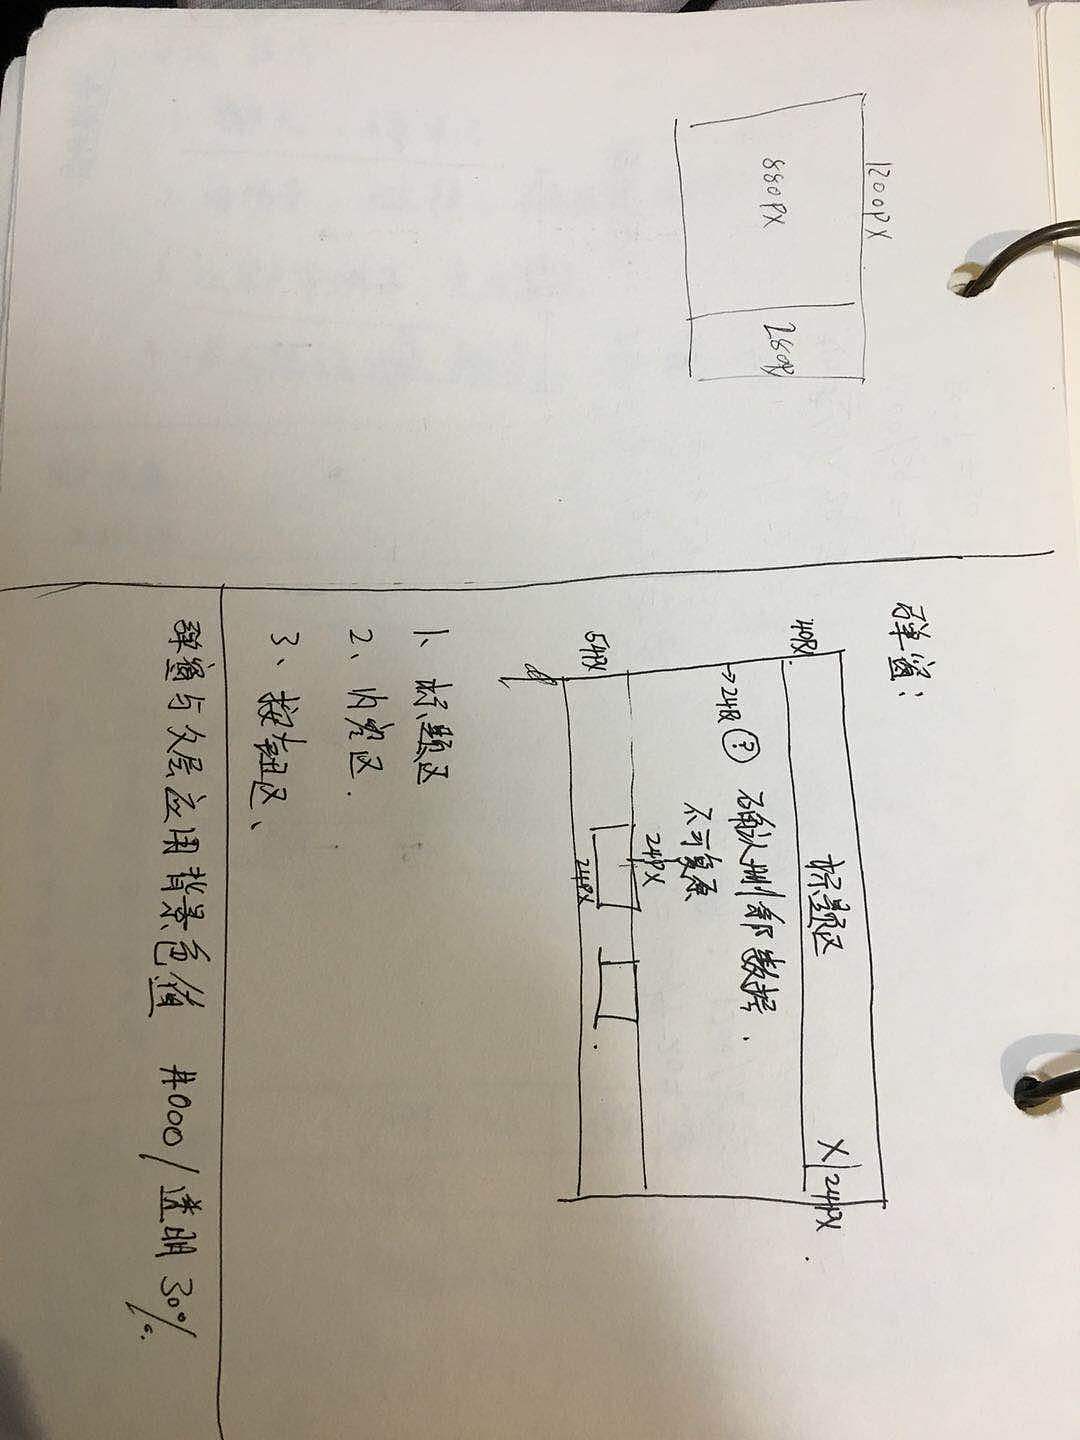 1200PX
880PX
280P
弹窗:
标题区
X 24PX
40PX
→24PX ? 确认删除数据.
不可复原
24PX
54PX
24PX
1、标题区
2、内容区.
3、按钮区、
弹窗与父层应用背景色值 #000/透明30%.